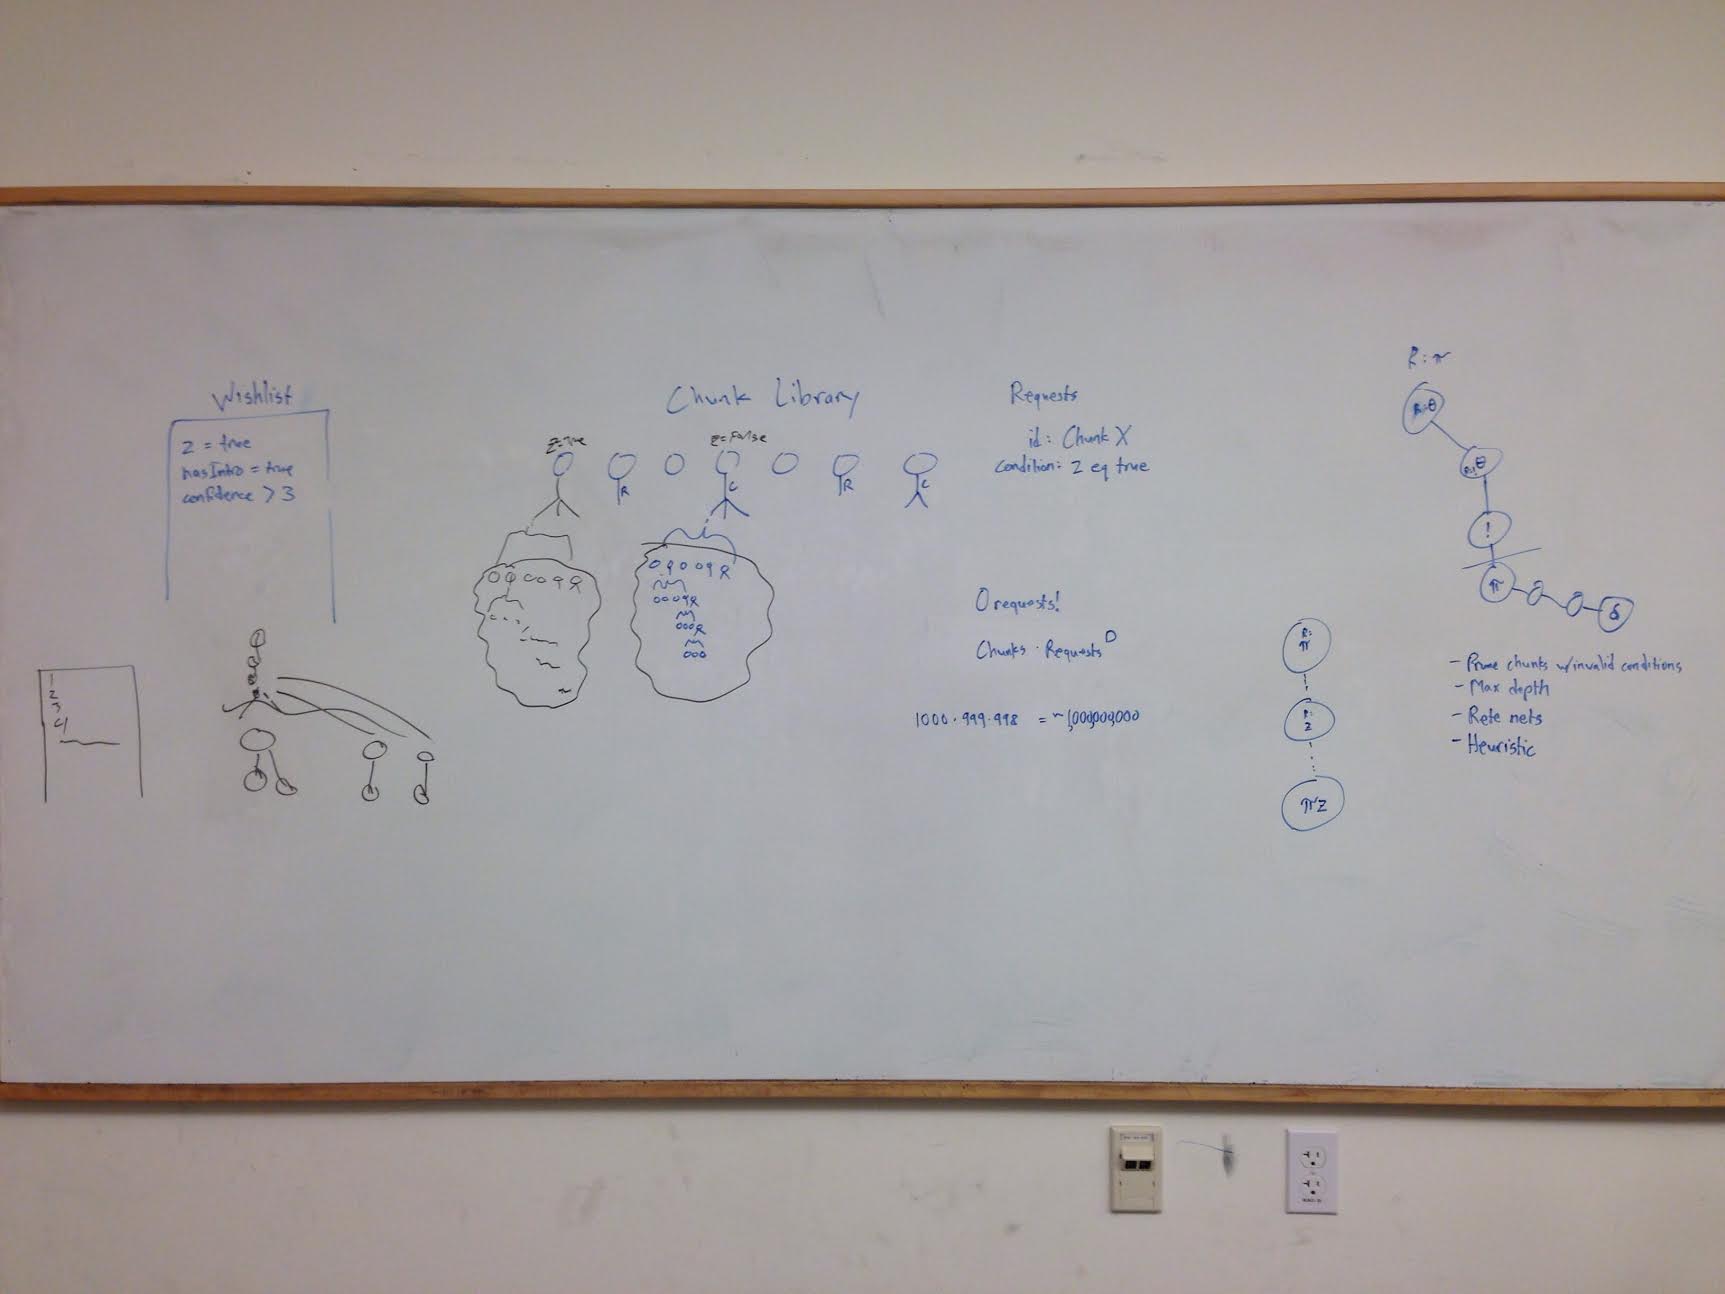 Wishlist
z = true
hasIntro = true
confidence > 3
1
2
3
4
Chunk Library
z=true
z=false
R
C
R
C
Requests
id: Chunk X
condition: z eq true
0 requests!
Chunks · Requests^D
1000 · 999 · 998 = ~1,000,000,000
R:
π
R:
z
πz
R: π
R:θ
θ
!
π
δ
- Prune chunks w/invalid conditions
- Max depth
- Rete nets
- Heuristic